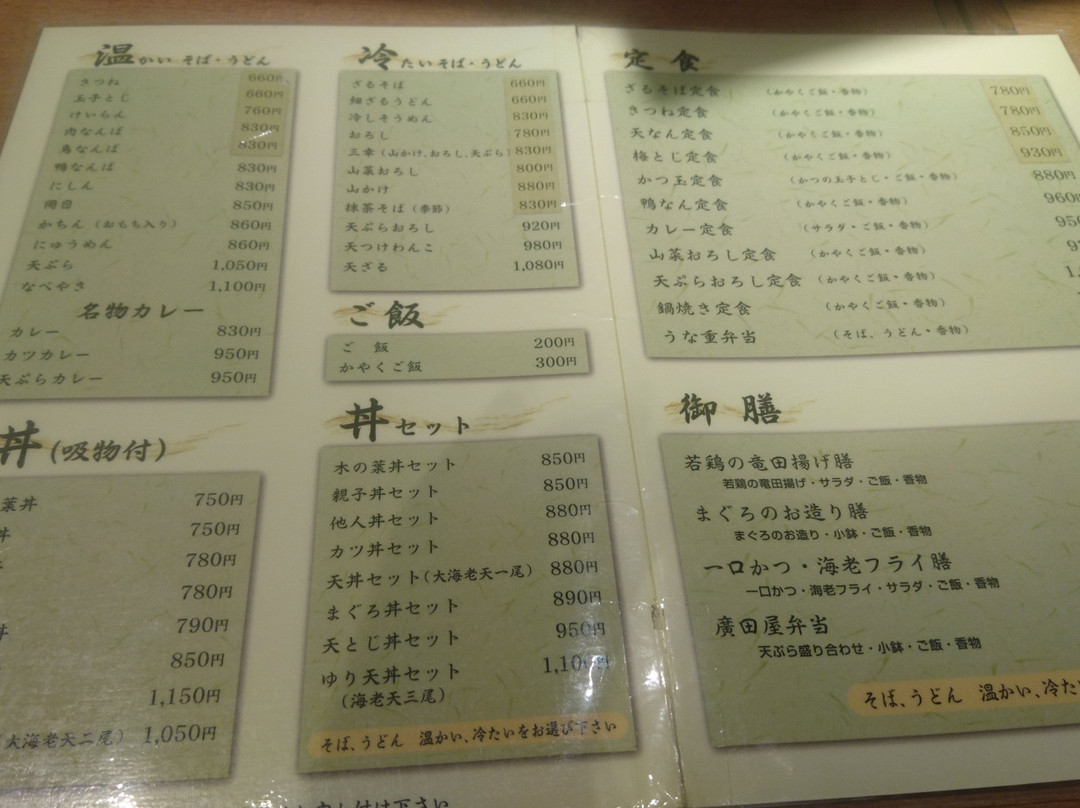 温かい そば・うどん
きつね 660円
玉子とじ 660円
けいらん 760円
肉なんば 830円
鳥なんば 830円
鴨なんば 830円
にしん 830円
岡目 850円
かちん（おもち入り） 860円
にゅうめん 860円
天ぷら 1,050円
なべやき 1,100円
名物カレー
カレー 830円
カツカレー 950円
天ぷらカレー 950円
丼(吸物付)
葉丼 750円
丼 750円
780円
780円
丼 790円
850円
1,150円
(大海老天二尾) 1,050円
冷たいそば・うどん
ざるそば 660円
細ざるうどん 660円
冷しそうめん 830円
おろし 780円
三幸（山かけ、おろし、天ぷら） 830円
山菜おろし 800円
山かけ 880円
抹茶そば（季節） 830円
天ぷらおろし 920円
天つけわんこ 980円
天ざる 1,080円
ご飯
ご飯 200円
かやくご飯 300円
丼セット
木の葉丼セット 850円
親子丼セット 850円
他人丼セット 880円
カツ丼セット 880円
天丼セット(大海老天一尾) 880円
まぐろ丼セット 890円
天とじ丼セット 950円
ゆり天丼セット 1,100円
(海老天三尾)
そば、うどん 温かい、冷たいをお選び下さい
定食
ざるそば定食 （かやくご飯・香物） 780円
きつね定食 （かやくご飯・香物） 780円
天なん定食 （かやくご飯・香物） 850円
梅とじ定食 （かやくご飯・香物） 930円
かつ玉定食 （かつの玉子とじ・ご飯・香物） 880円
鴨なん定食 （かやくご飯・香物） 960円
カレー定食 （サラダ・ご飯・香物） 950
山菜おろし定食 （かやくご飯・香物）
天ぷらおろし定食 （かやくご飯・香物）
鍋焼き定食 （かやくご飯・香物）
うな重弁当 （そば、うどん・香物）
御膳
若鶏の竜田揚げ膳
若鶏の竜田揚げ・サラダ・ご飯・香物
まぐろのお造り膳
まぐろのお造り・小鉢・ご飯・香物
一口かつ・海老フライ膳
一口かつ・海老フライ・サラダ・ご飯・香物
廣田屋弁当
天ぷら盛り合わせ・小鉢・ご飯・香物
そば、うどん 温かい、冷た